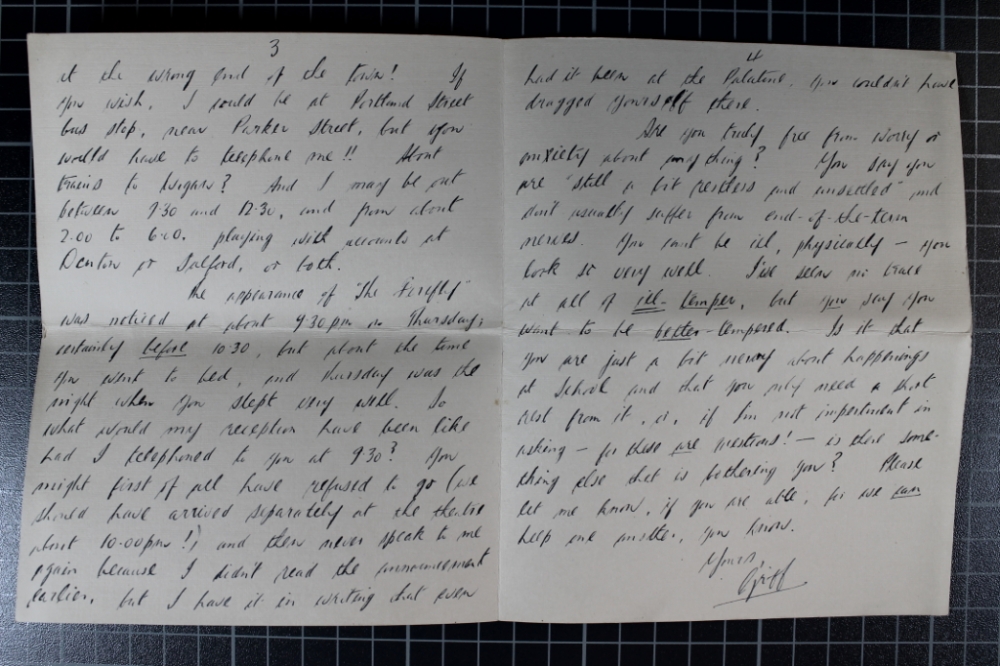 3
at the wrong end of the town! If
you wish, I could be at Portland Street
bus stop, near Parker Street, but you
would have to telephone me!! About
trains to Wigan? And I may be out
between 9.30 and 12.30, and from about
2.00 to 6.00, playing with accounts at
Denton or Salford, or both.
The appearance of "The Firefly"
was noticed at about 9.30 pm on Thursday;
certainly before 10.30, but about the time
you went to bed, and Thursday was the
night when you slept very well. So
what would my reception have been like
had I telephoned to you at 9.30? You
might first of all have refused to go (we
should have arrived separately at the theatre
about 10.00pm!) and then never speak to me
again because I didn't read the announcement
earlier, but I have it in writing that even
4
had it been at the Palatine, you couldn't have
dragged yourself there.
Are you truly free from worry or
anxiety about anything? You say you
are "still a bit restless and unsettled" and
don't usually suffer from end-of-the-term
nerves. You can't be ill, physically – you
look so very well. I've seen no trace
at all of ill-temper, but you say you
want to be better-tempered. Is it that
you are just a bit weary about happenings
at School and that you only need a short
rest from it, or, if I'm not impertinent in
asking – for these are questions! – is there some-
thing else that is bothering you? Please
let me know, if you are able, for we can
help one another, you know.
Yours,
Griff